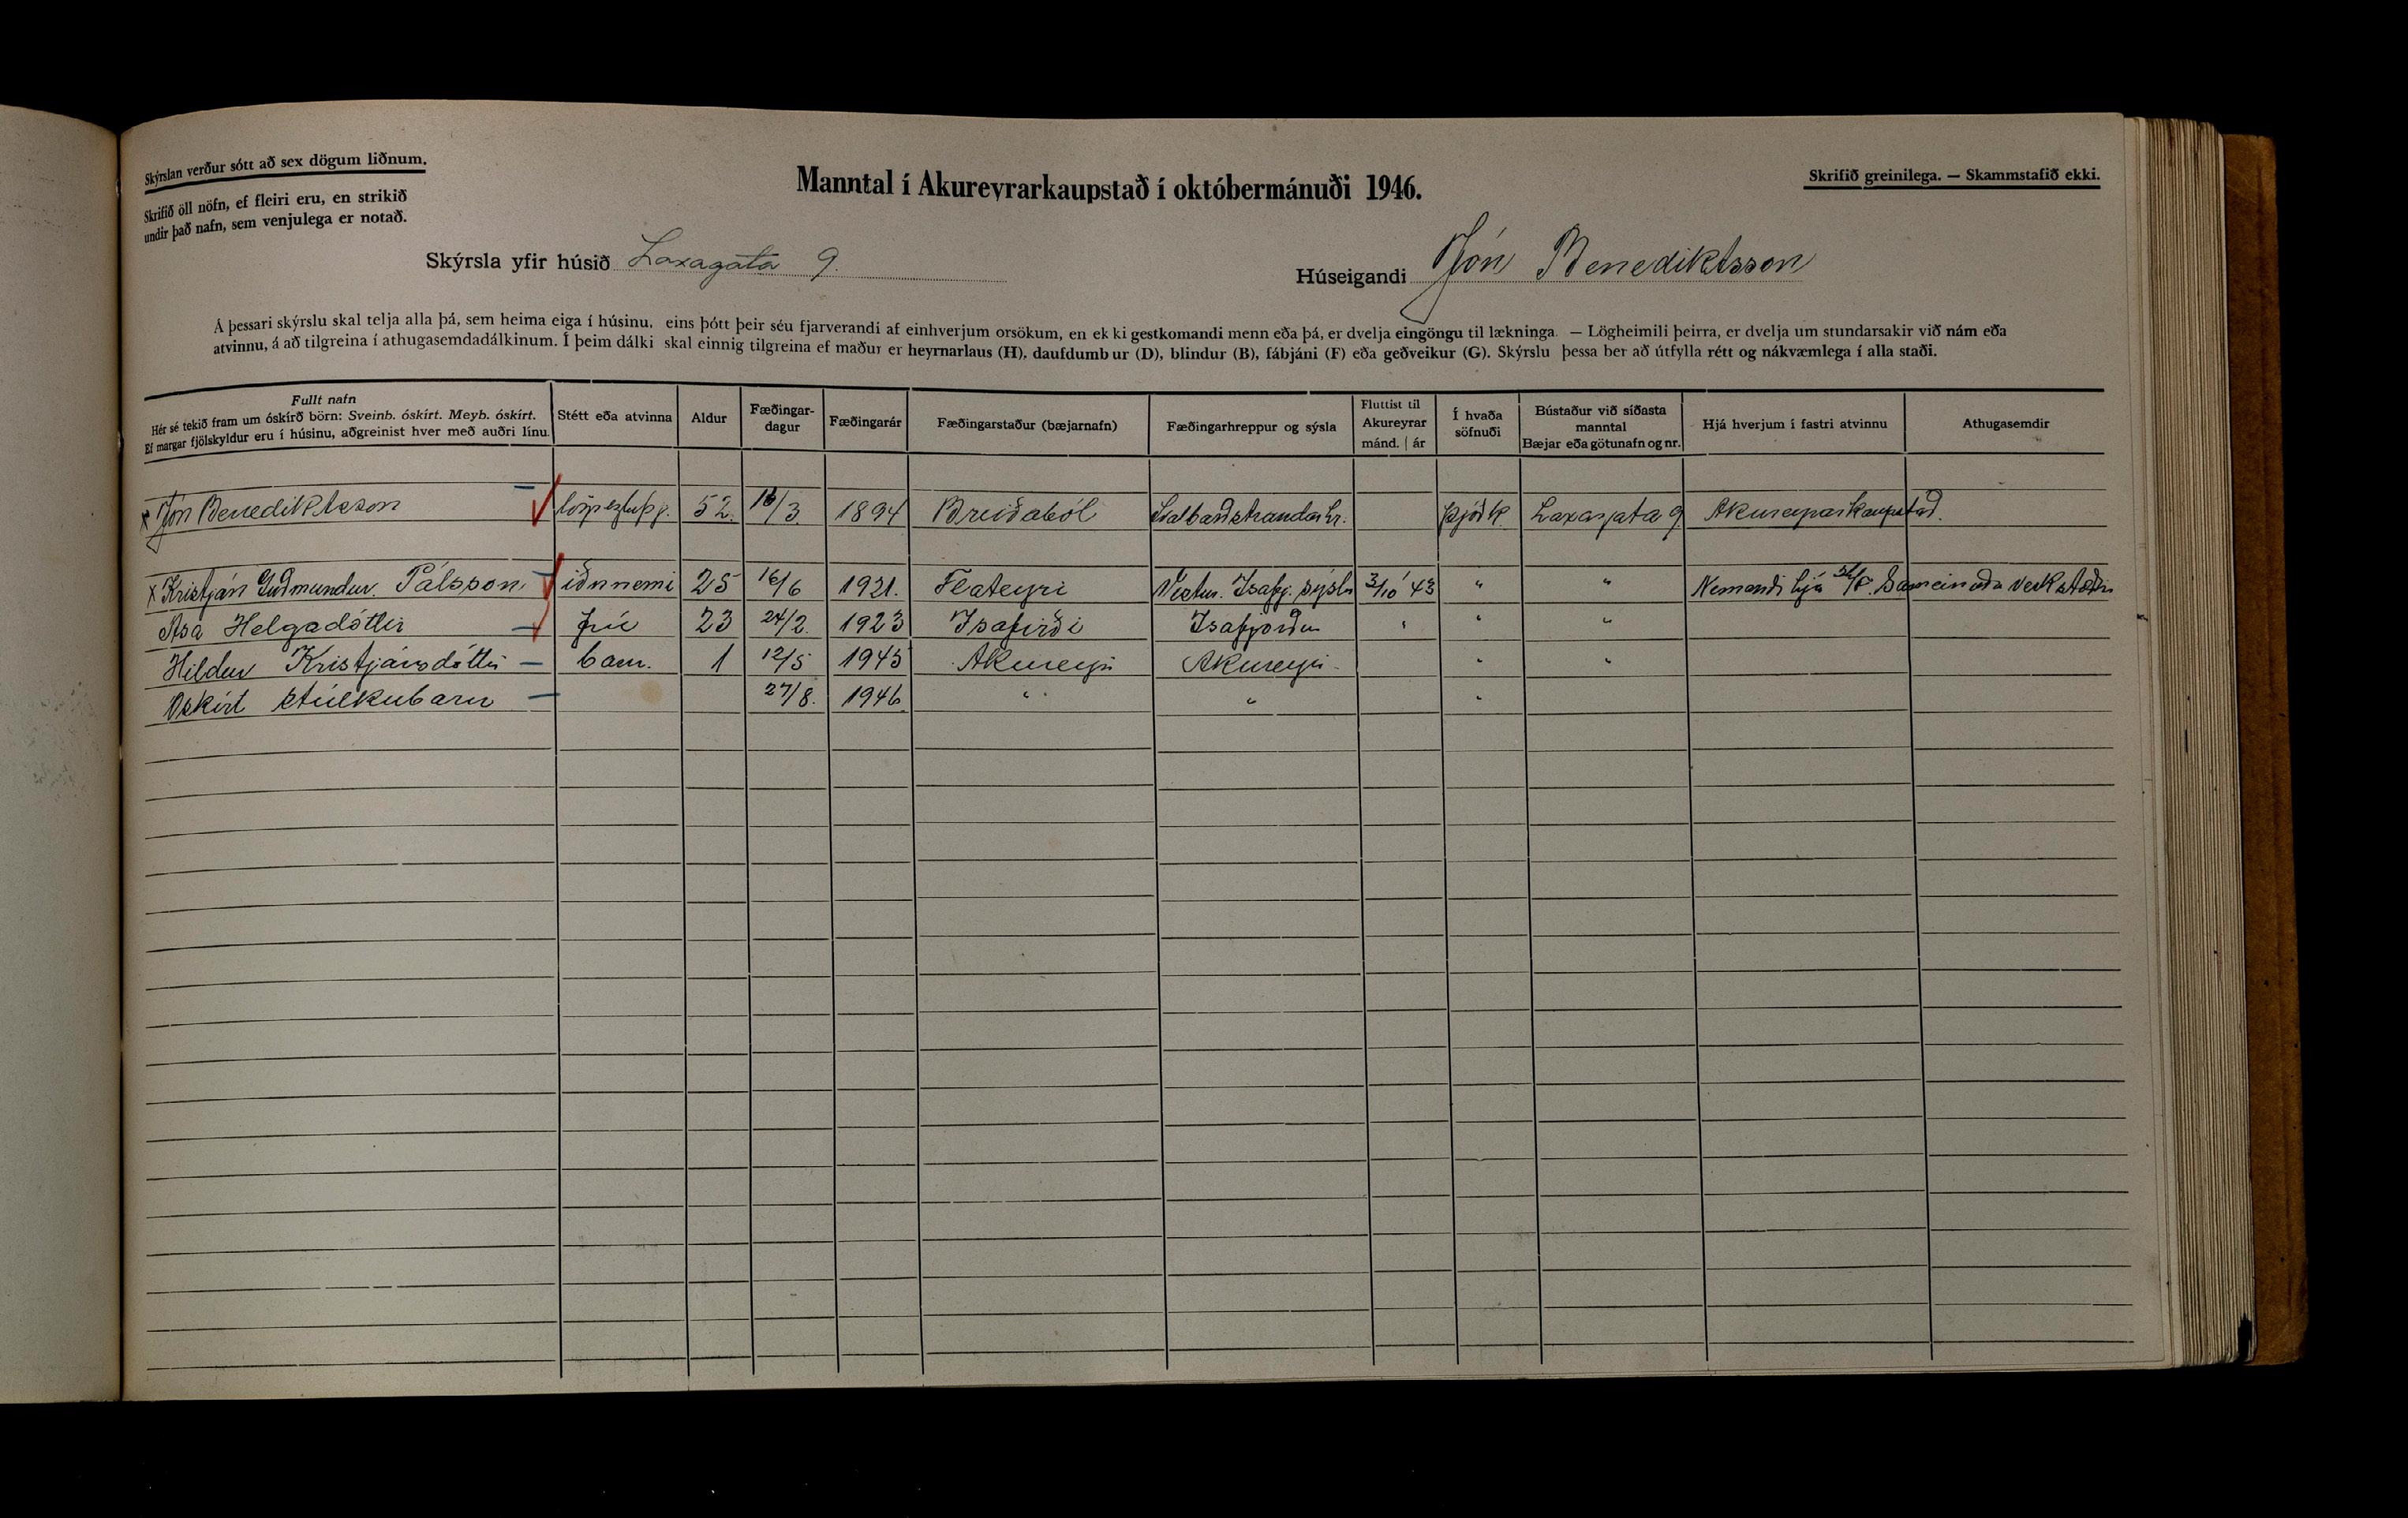 Skýrslan verður sótt að sex dögum liðnum.
Skrifið öll nöfn, ef fleiri eru, en strikið
undir það nafn, sem venjulega er notað.
Manntal í Akureyrarkaupstað í októbermánuði 1946.
Skrifið greinilega. — Skammstafið ekki.
Skýrsla yfir húsið Laxagata 9.
Húseigandi Jón Benediktsson
Á þessari skýrslu skal telja alla þá, sem heima eiga í húsinu, eins þótt þeir séu fjarverandi af einhverjum orsökum, en ekki gestkomandi menn eða þá, er dvelja eingöngu til lækninga. — Lögheimili þeirra, er dvelja um stundarsakir við nám eða
atvinnu, á að tilgreina í athugasemdadálkinum. Í þeim dálki skal einnig tilgreina ef maður er heyrnarlaus (H), daufdumbur (D), blindur (B), fábjáni (F) eða geðveikur (G). Skýrslu þessa ber að útfylla rétt og nákvæmlega í alla staði.
Fullt nafn
Hér sé tekið fram um óskírð börn: Sveinb. óskírt. Meyb. óskírt.
Ef margar fjölskyldur eru í húsinu, aðgreinist hver með auðri línu.
Stétt eða atvinna
Aldur
Fæðingar-
dagur
Fæðingarár
Fæðingarstaður (bæjarnafn)
Fæðingarhreppur og sýsla
Fluttist til
Akureyrar
mánd. | ár
Í hvaða
söfnuði
Bústaður við síðasta
manntal
Bæjar eða götunafn og nr.
Hjá hverjum í fastri atvinnu
Athugasemdir
x Jón Benediktsson 52. 16/3 1894 Breiðaból Svalbarðstrandarhr. Þjóðk Laxagata 9 Akureyrarkaupstað.
x Kristján Guðmundur Pálsson iðnnemi 25 16/6 1921. Flateyri Vestur. Ísafj. sýslu 3/10 '43 " " Nemandi hjá Sameinuðu verkstæði
Ása Helgadóttir frú 23 24/2. 1923 Ísafirði Ísafjörður " " "
Hildur Kristjánsdóttir — barn. 1 12/5 1945 Akureyri Akureyri " "
Óskírt stúlkubarn — 27/8. 1946 " " "